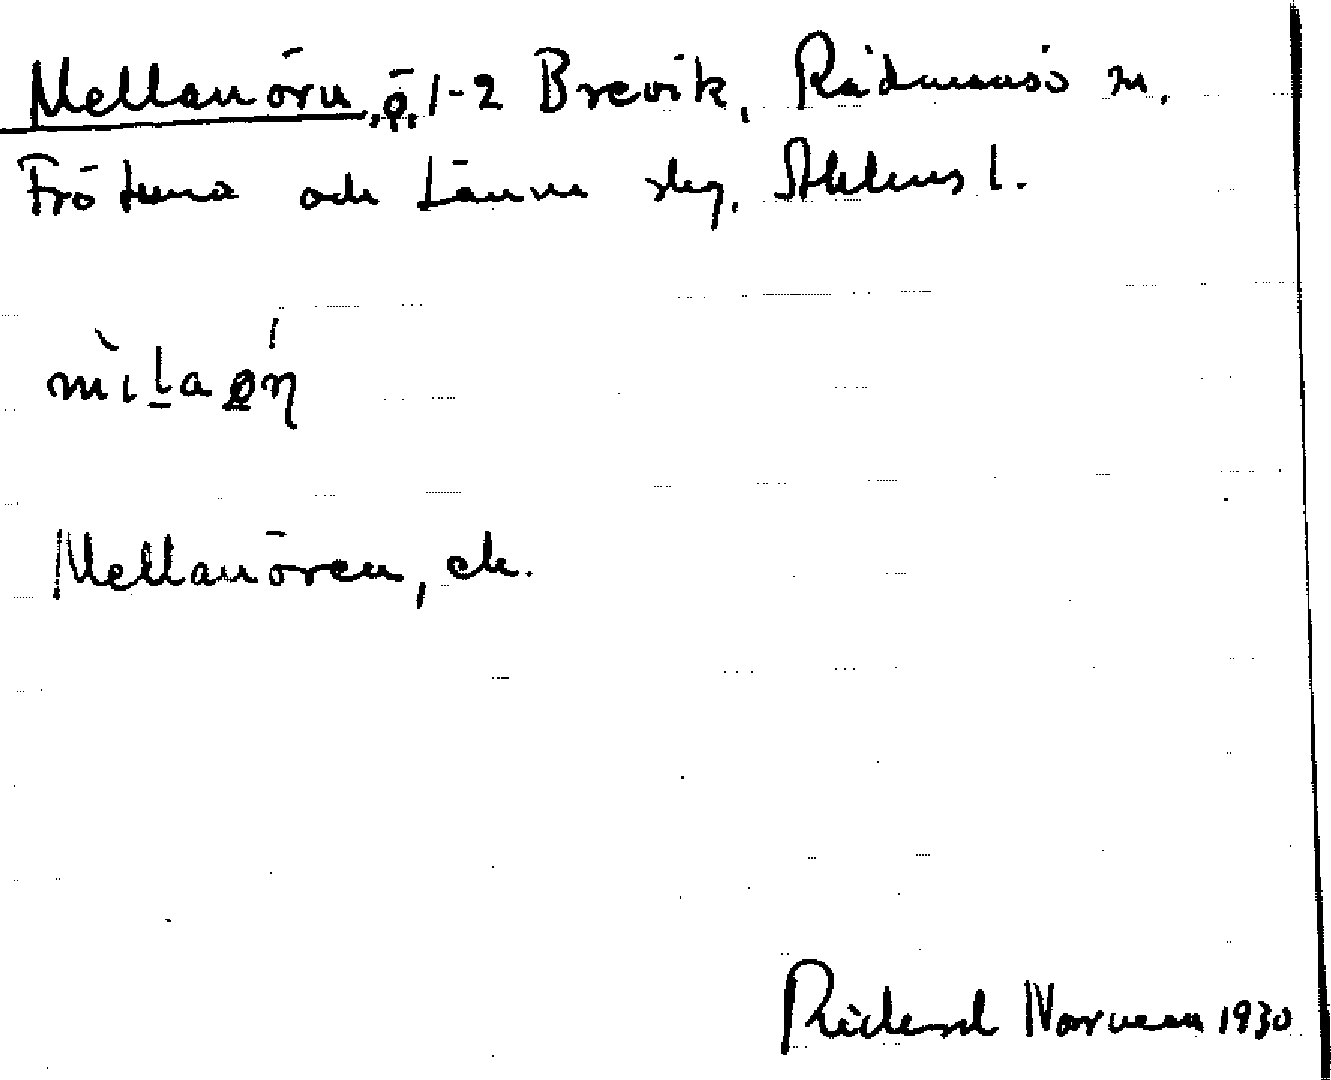 Mellanörn, ö, 1-2 Brevik, Rådmansö sn.
Frötuna och Länna slg, Sthlms l.
Mellanören, ek.
Rickard Norman 1930